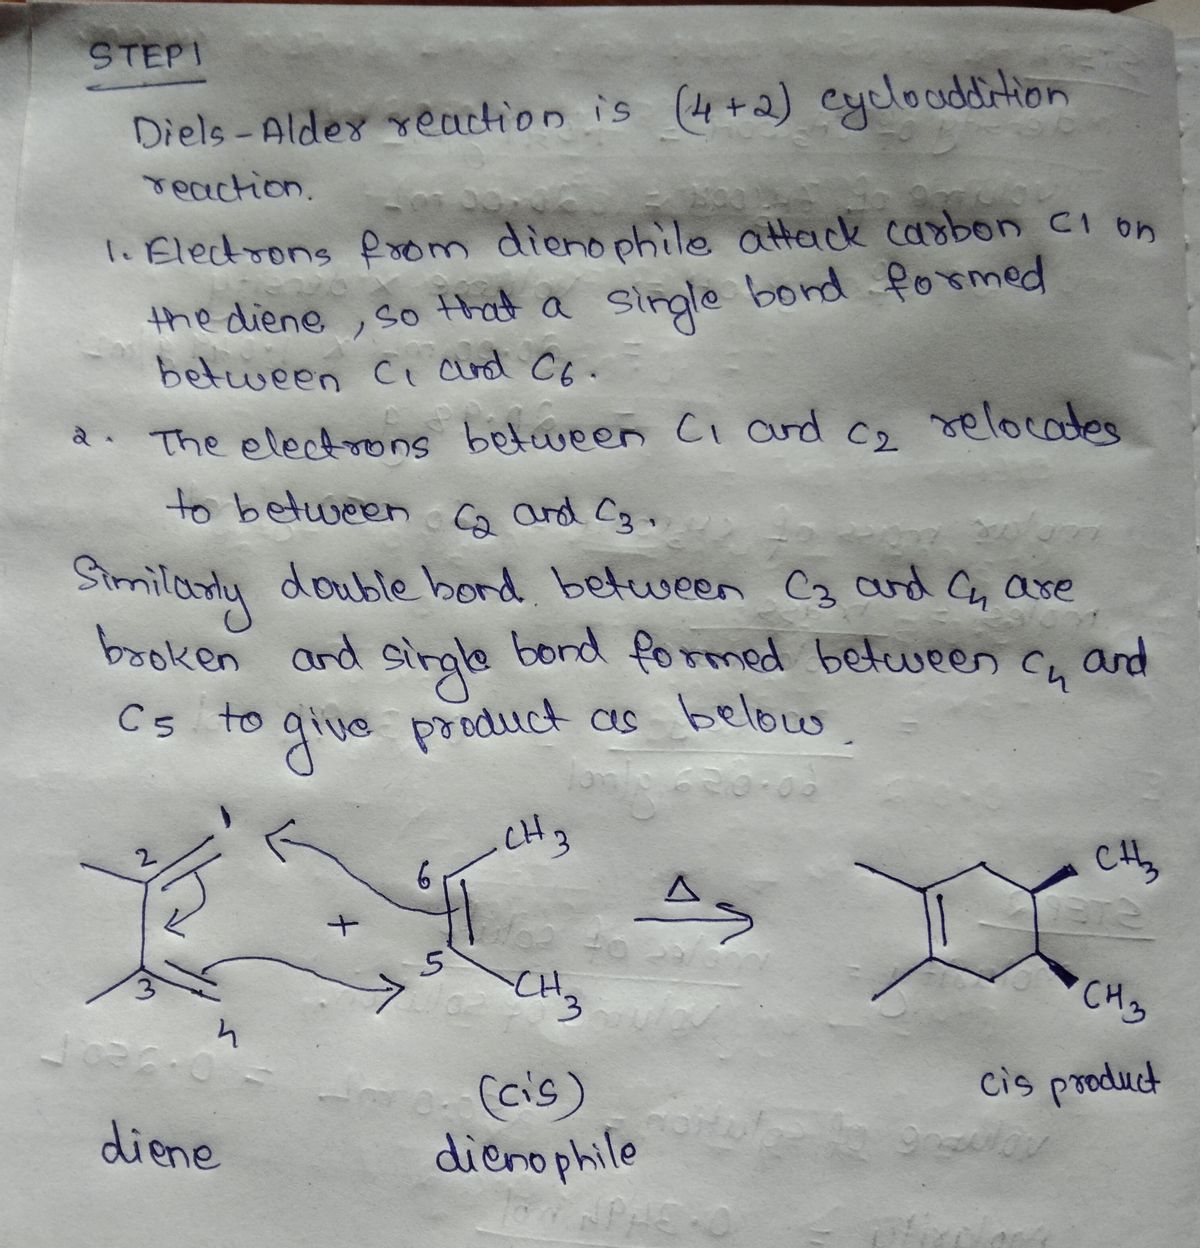 STEP 1
Diels-Alder reaction is (4+2) cycloaddition
reaction.
1. Electrons from dienophile attack carbon C1 on
the diene, so that a single bond formed
between C1 and C6.
2. The electrons between C1 and C2 relocates
to between C2 and C3.
Similarly double bond between C3 and C4 are
broken and single bond formed between C4 and
C5 to give product as below.
1
2
3
4
+
6
5
CH3
CH3
Δ
CH3
CH3
(cis)
cis product
diene
dienophile